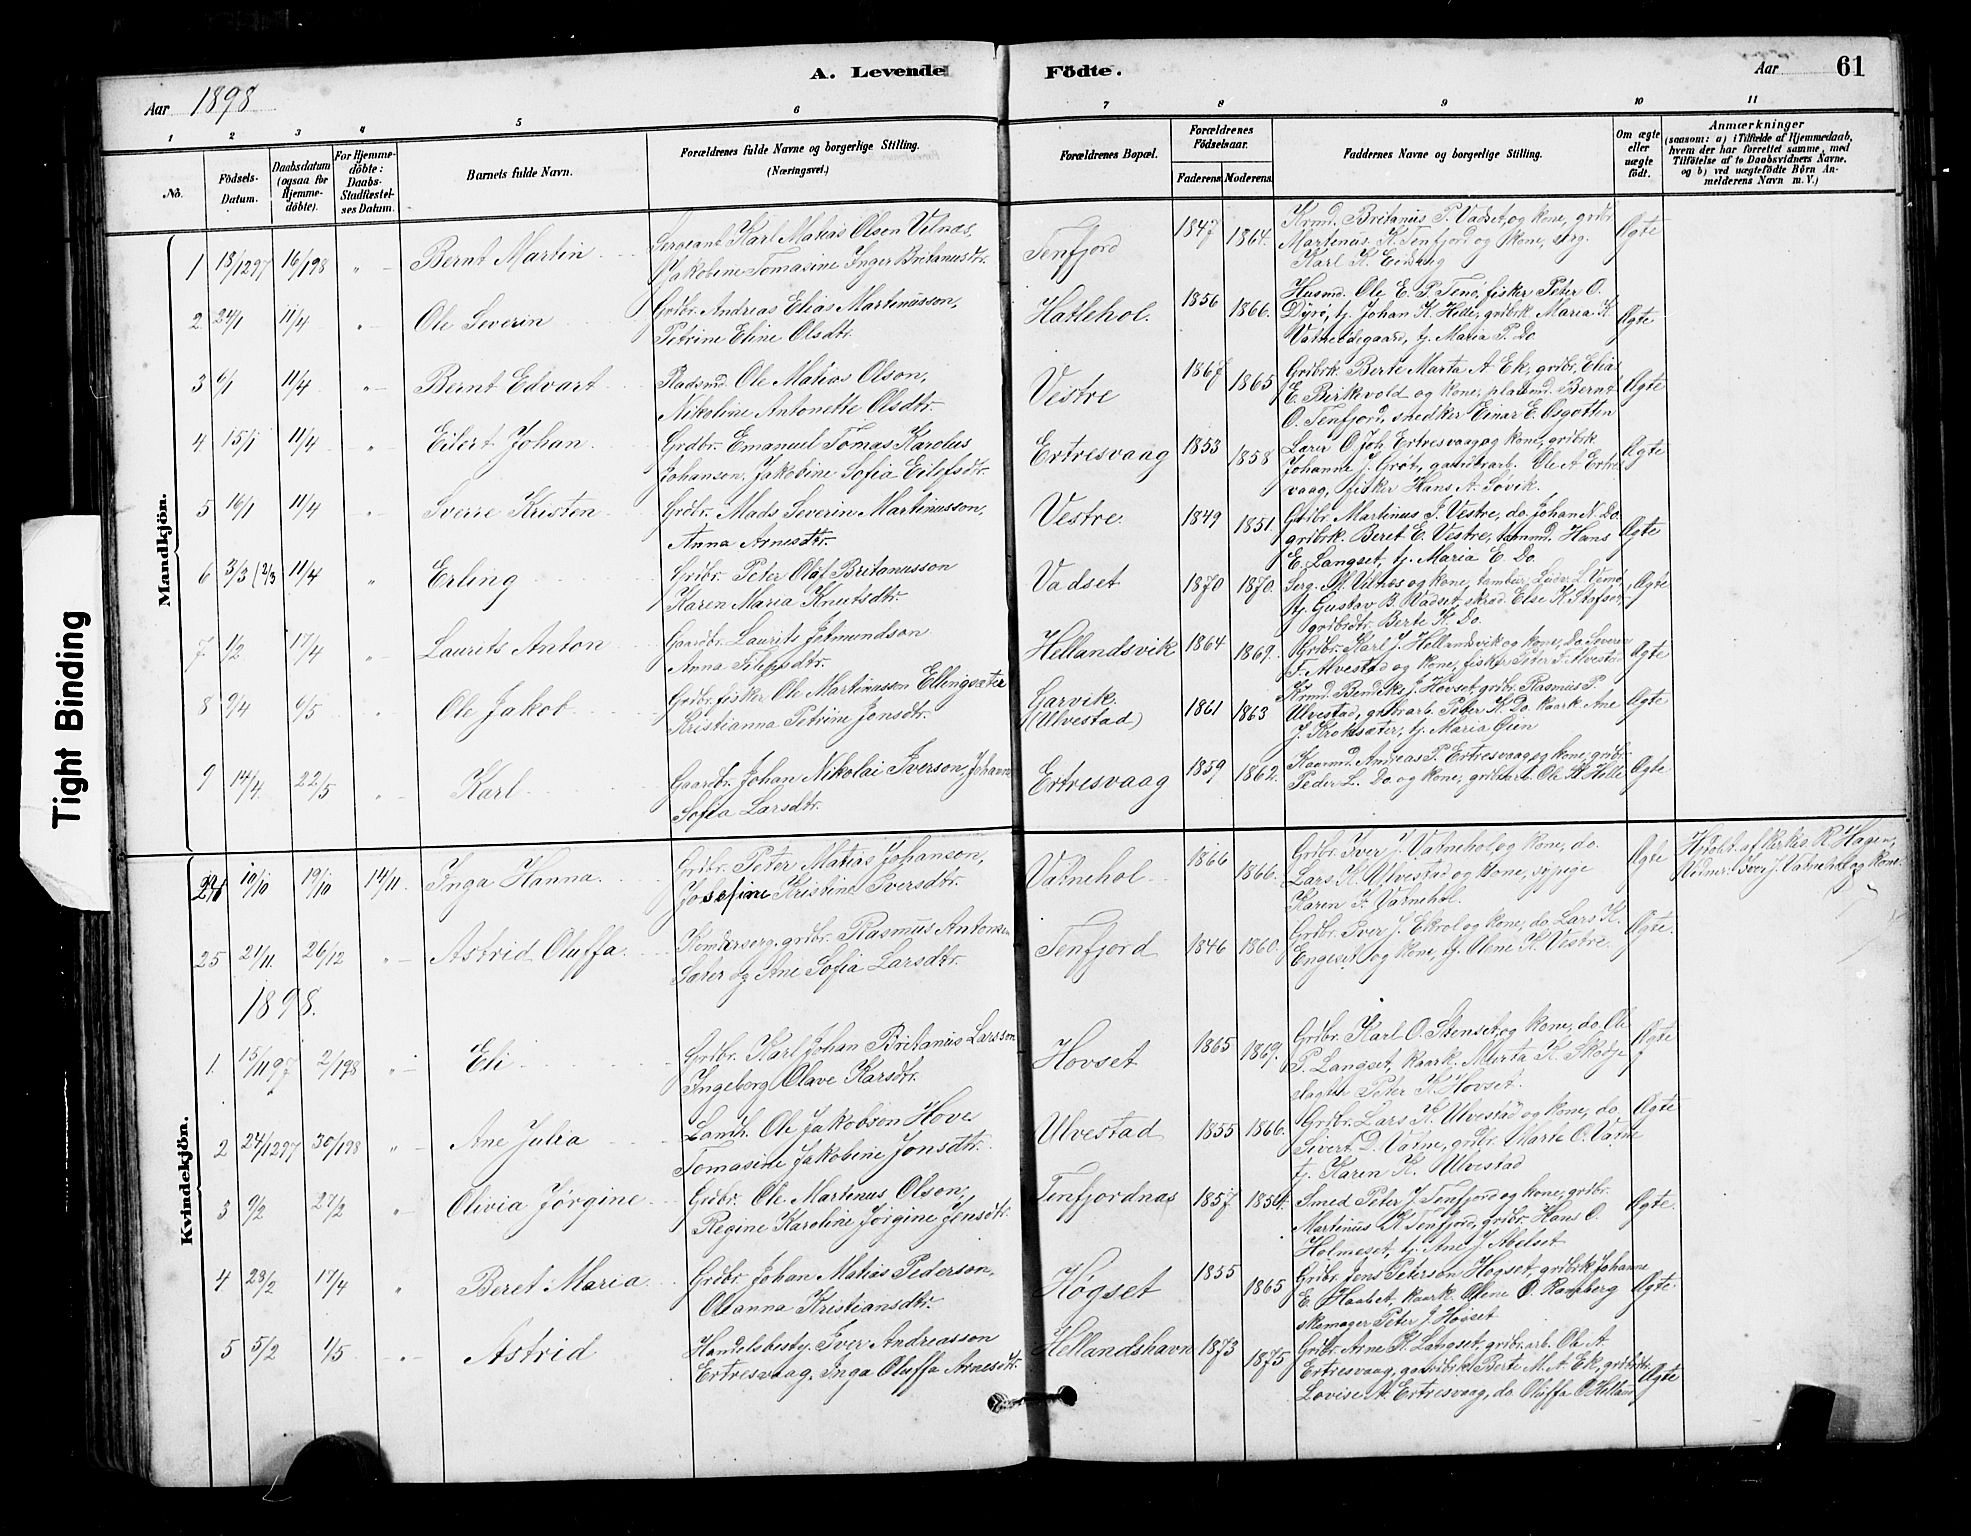 A. Levende Födte.
Aar 1898
Aar 61
1 2 3 4 5 6 7 8 9 10 11
No.
Födsels-Datum.
Daabsdatum (ogsaa for Hjemme-döbte).
For Hjemme-döbte: Daabs-Stadfæstel-ses Datum.
Barnets fulde Navn.
Forældrenes fulde Navne og borgerlige Stilling.
(Næringsvei.)
Forældrenes Bopæl.
Forældrenes Födselsaar.
Faderens Moderens
Faddernes Navne og borgerlige Stilling.
Om ægte eller uægte födt.
Anmærkninger
(saasom: a) i Tilfælde af Hjemmedaab, hvem der har forrettet samme, med Tilföielse af to Daabsvidners Navne, og b) ved uægtefödte Börn An-melderens Navn m. V.)
Mandkjön.
1 18/12 97 16/1 98 " Bernt Martin
Sergeant Karl Matias Olsen Vilnæs,
Jakobine Tomasine Inger Britanusdtr.
Tenfjord 1847 1864.
Krmd. Britanus P. Vadset, og kone, grdbr
Martinus K. Tenfjord og kone, serg.
Karl K.
Ægte
2. 24/1 11/4 " Ole Severin
Grdbr. Andreas Elias Martinusson,
Petrine Eline Olsdtr.
Hatlehol. 1856 1866.
Husmd. Ole E. P. Tenö, fisker Peter O.
Dyrö, tj. Johan K. Helle, grdbrk. Maria K.
Vatneödegaard, tj. Maria P. Do
Ægte
3 6/1 11/4 " Bernt Edvart
Pladsmd. Ole Matias Olson,
Nikoline Antonette Olsdtr.
Vestre 1867 1865
Grdbrk. Berte Marta A. Ek, grdbr. Elias
E. Birkevold og kone, pladsmd. Bernt
O. Tenfjord, snedker Einar E. Osgotten
Ægte
4 15/1 11/4 " Eilert Johan
Grdbr. Emanuel Tomas Karolus
Johanson, Jakobine Sofia Eilefsdtr.
Ertresvaag 1853 1858
Lærer O. Joh. Ertresvaag og kone, grdbrk
Johanne J. Gröt, gaardbrarb. Ole A. Ertres
vaag, fisker Hans A. Sövik.
Ægte
5 16/1 11/4 " Sverre Kristen
Grdbr. Mads Severin Martinusson,
Anna Arnesdtr.
Vestre. 1849 1851.
Grdbr. Martinus J. Vestre, do. Johan N. Do.
grdbrk. Beret E. Vestre, tømmd. Hans
E. Langset, tj. Maria E. Do.
Ægte
6 3/3 (2/3 11/4 " Erling
Grdbr. Peter Olaf Britanusson
Karen Maria Knutsdtr.
Vadset 1870 1870.
Serg. M. Vilnæs og kone, tambur Ludv. L. Vemö,
tj. Gustav B. Vadset, skræd. Else K. Stafset,
grdbrdtr. Berte K. Do.
Ægte
7 1/2 17/4 " Laurits Anton
Gaardbr. Laurits Jetmundson
Anna Filipsdtr.
Hellandsvik 1864 1869.
Grdbr. Karl J. Hellandsvik og kone, Do. Severin
F. Ulvestad og kone, fisker Peter F. Ulvestad
Ægte
8 9/4 6/5 " Ole Jakob
Grdbr. fisker Ole Martinusson Ellingsæter
Kristianna Petrine Jonsdtr.
Garvik. (Ulvestad) 1861 1863
Krmd. Bendiks J. Hovset, grdbr. Rasmus P.
Ulvestad, grdbrarb. Peter K. Do. kaark. Ane
J. Kroksæter, tj. Maria Gjen
Ægte
9 14/4. 22/5 " Karl
Gaardbr. Johan Nikolai Iverson, Johanne
Sofia Larsdtr.
Ertresvaag 1859 1862.
Kaarmd. Andreas P. Ertresvaag og kone, grdbr.
Peder L. Do og kone, grdbrarb. Ole K. Helle
Ægte
Kvindekjön.
24 10/10 19/10 14/11 Inga Hanna.
Grdbr. Peter Matias Johanson,
Josefine Kristine Iversdtr.
Vatnehol 1866 1866.
Grdbr. Iver J. Vatnehol og kone, do.
Lars K. Ulvestad og kone, sypige
Karen I. Vatnehol.
Ægte
Hjdöbt. af Kirkes. R. Hagen,
Vidner: Iver J. Vatnehol og kone.
25 21/11. 26/12 " Astrid Oluffa.
Komdersserg. grdbr. Rasmus Antonsen
Sæter og Ane Sofia Larsdtr.
Tenfjord 1846 1860.
Grdbr. Iver J. Ekrol og kone, do. Lars K.
Engeset og kone, tj. Oline K. Vestre.
Ægte.
1898.
1. 15/11 97 2/1 98 " Eli
Grdbr. Karl Johan Britanius Larsson
Ingeborg Olave Larsdtr.
Hovset 1865 1869.
Grdbr. Karl O. Stenset, og kone, do. Ole
P. Langset, kaark. Marta K. Skodje
slagter Peter K. Hovset.
Ægte
2 24/12 97 30/1 98 " Ane Julia
Landh. Ole Jakobson Hove
Tomasine Jakobine Jonsdtr.
Ulvestad 1855 1866.
Grdbr. Lars K. Ulvestad og kone, do.
Sivert D. Vatne, grdbr. Marte O. Vatne
tj. Karen K. Ulvestad
Ægte
3 9/2 27/2 " Olivia Jørgine
Grdbr. Ole Martinus Olson,
Regine Karoline Jørgine Jensdtr.
Tenfjordnæs 1857. 1854.
Smed Peter J. Tenfjord og kone, grdbr.
Martinus K. Tenfjord, grdbr. Hans O.
Holmeset, tj. Ane J. Abelset
Ægte.
4 28/2 17/4 " Beret Maria
Grdbr. Johan Matias Pederson,
Olianna Kristiansdtr.
Høgset 1855 1865
Grdbr. Jens Peterson Høgset, grdbrk. Johanne
E. Haabet, kaark. Oline O. Ramberg
skomager Peter J. Hovset
Ægte.
5 5/2 1/5 " Astrid
Handelsbesty. Iver Andreasson
Ertresvaag, Inga Oluffa Arnesdtr.
Hellandshavn 1873 1875
Grdbr. Arne K. Langset, grdbr.arb. Ole A.
Ertresvaag, gaardbrk. Berte M. A. Ek, grdbrdtr.
Lovise A. Ertresvaag, do. Oluffa O. Helland
Ægte
Tight Binding